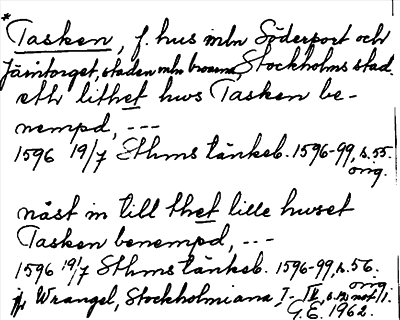 * Tasken, f. hus mln Söderport och
Järntorget, staden mln broarna, Stockholms stad.
ett lithet hws Tasken be-
nempd, ---
1596 19/7 Sthms tänkeb. 1596-99, s. 55.
orig.
näst in till thet lille huset
Tasken benempd, ---
1596 19/7 Sthms tänkeb. 1596-99, s. 56.
orig.
jfr Wrangel, Stockholmiana I-IV, s. 12 not 1.
G.E. 1962.